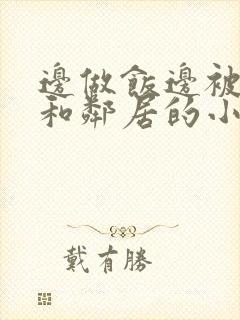 邊做飯邊被
和鄰居的小
戴有勝